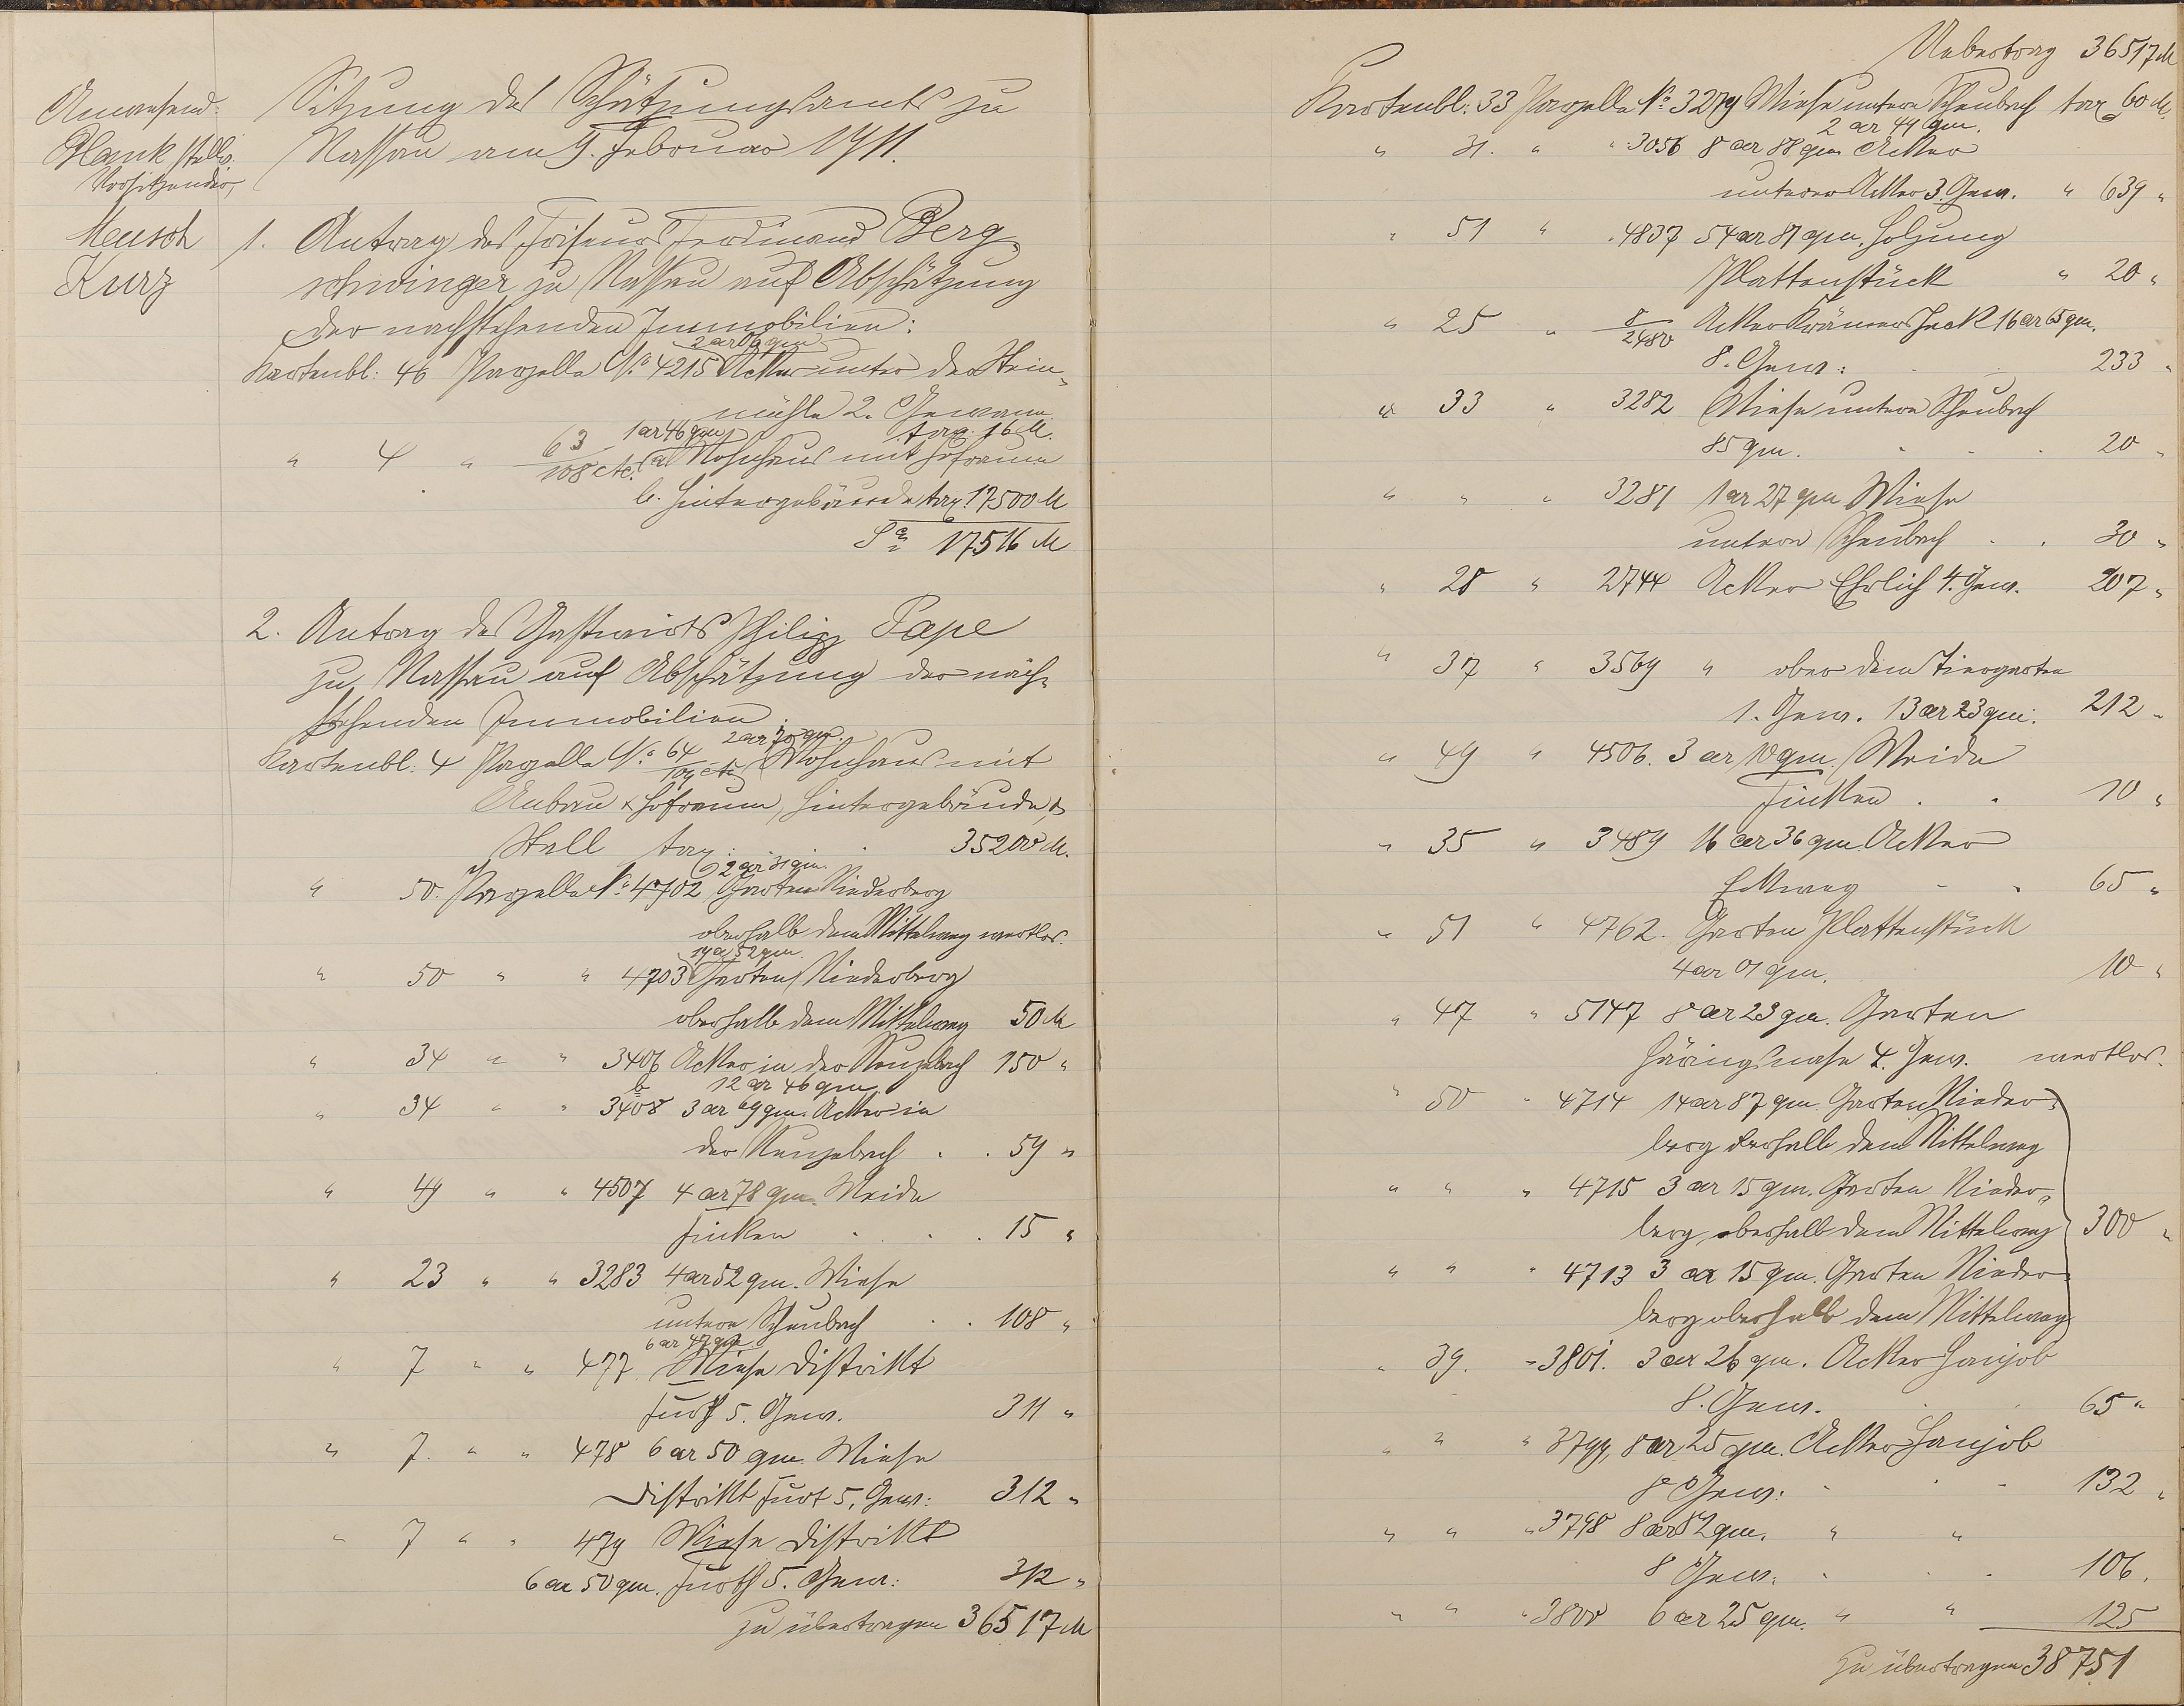 Anwesend:
Plank stellv.
Vorsitzender,
Meusch
Kurz
Sitzung des Schätzungsamts zu
Nassau am 9. Februar 1911.
1. Antrag des Friseurs Ferdinand Berg-
schwinger zu Nassau auf Abschätzung
der nachstehenden Immobilien:
2 ar 06 qm
Kartenbl: 46 Parzelle No 4215 Acker unter der Stein-
mühle 2. Gewann
tax. 16 M.
1 ar 46 qm
" 4 " 63/108 etc. a Wohnhaus mit Hofraum
b. Hintergebäude tax. 17500 M
Sa 17516 M
2. Antrag des Gastwirts Philipp Pape
zu Nassau auf Abschätzung der nach-
stehenden Immobilien:
2 ar 70 qm.
Kartenbl. 4 Parzelle No 64/109 etc Wohnhaus mit
Anbau & Hofraum, Hintergebäude &
Stall tax: 35200 M.
2 ar 31 qm.
" 50. Parzelle No 4702 Garten Niederberg
oberhalb dem Mittelweg wertlos.
19 a 52 qm.
" 50 " " 4703 Garten Niederberg
oberhalb dem Mittelweg 50 M
" 34 " " 3406 Acker in der Neuzebach 150 "
b 12 ar 46 qm
" 34 " " 3408 3 ar 69 qm. Acker in
der Neuzebach . . 59 "
" 49 " " 4507 4 ar 78 qm. Weide
Finken . . . 15 "
" 23 " " 3283 4 ar 52 qm. Wiese
untere Scheubach . . 108 "
6 ar 47 qm.
" 7 " " 477. Wiese Distrikt
Furth 5. Gew. 311 "
" 7. " " 478 6 ar 50 qm Wiese
Distrikt Furt 5. Gew: 312 "
" 7 " " 479 Wiese Distrikt
6 ar 50 qm. Furth 5. Gew: 312 "
zu übertragen 36517 M
Uebertrag 36517 M
Kartenbl: 33 Parzelle No 3279 Wiese untere Scheubach tax 60 M.
2 ar 44 qm.
" 31. " " 3056 8 ar 88 qm Acker
unterer Acker 3. Gew. " 639 "
" 51 " " 4837 54 ar 81 qm. Holzung
Plattenstück " 20 "
" 25 " 8/2480 Acker Krämers Heck 16 ar 65 qm.
8. Gew: 233 "
" 33 " 3282 Wiese untere Scheubach
85 qm. . . . 20 "
" " " 3281 1 ar 27 qm Wiese
untere Scheubach . . 30 "
" 28 " 2744 Acker Ehrlich 4. Gew. 207 "
" 37 " 3569 " ober dem Tiergarten
1. Gew. 13 ar 23 qm. 212 "
" 49 " 4506. 3 ar 10 qm. Weide
Finken . . 10 "
" 35 " 3489 16 ar 36 qm. Acker
Eckweg . . 65 "
" 51 " 4762. Garten Plattenstück
4 ar 01 qm. 10 "
" 47 " 5147 8 ar 23 qm. Garten
Häringsnase 4. Gew. wertlos.
" 50 " 4714 14 ar 87 qm. Garten Nieder-
berg oberhalb dem Mittelweg
" " " 4715 3 ar 15 qm. Garten Nieder-
berg, oberhalb dem Mittelweg 300 "
" " " 4713 3 ar 15 qm. Garten Nieder-
berg oberhalb dem Mittelweg
" 39. " 3801. 3 ar 26 qm. Acker Hanjob
8. Gew. 65 "
" " " 3799, 8 ar 25 qm. Acker Hanjob
8 Gew: . . . 132 "
" " " 3798 8 ar 82 qm. " "
8 Gew: . . . 106.
" " " 3800 6 ar 25 qm. " " 125
zu übertragen 38751